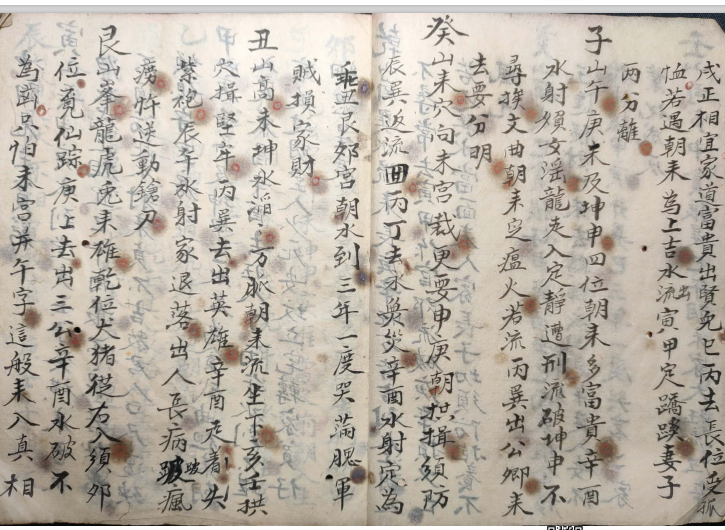 戌正相宜家道富貴出賢兒巳丙去長位孤
恤若遇朝來為上吉水流出寅甲定蹻蹊妻子
兩分離
子山午庚未及坤申四位朝來多富貴辛酉
水射須女淫龍走入定靜遭刑流破坤申不
尋挨文曲朝來定瘟火若流丙巽出公卿來
去要分明
癸山來穴向未宮裁更要申庚朝拱揖須防
辰巽返流囬丙丁去水災辛酉水射定為
乖丑艮卯宮朝水到三年一度哭滿腮軍
賊損家財
丑山高未坤水溜万脈朝來流生下亥壬拱
穴揖堅牢丙巽去出英雄辛酉走着失
紫袍辰午水射家退落出人長病跛瘋
癆忤送動鎗刀
艮山峯龍虎兎來雄乾位犬猪從右入須卯
位覓仙踪庚上去出三公辛酉水破不
為凶只怕未宮并午字這般來入真相